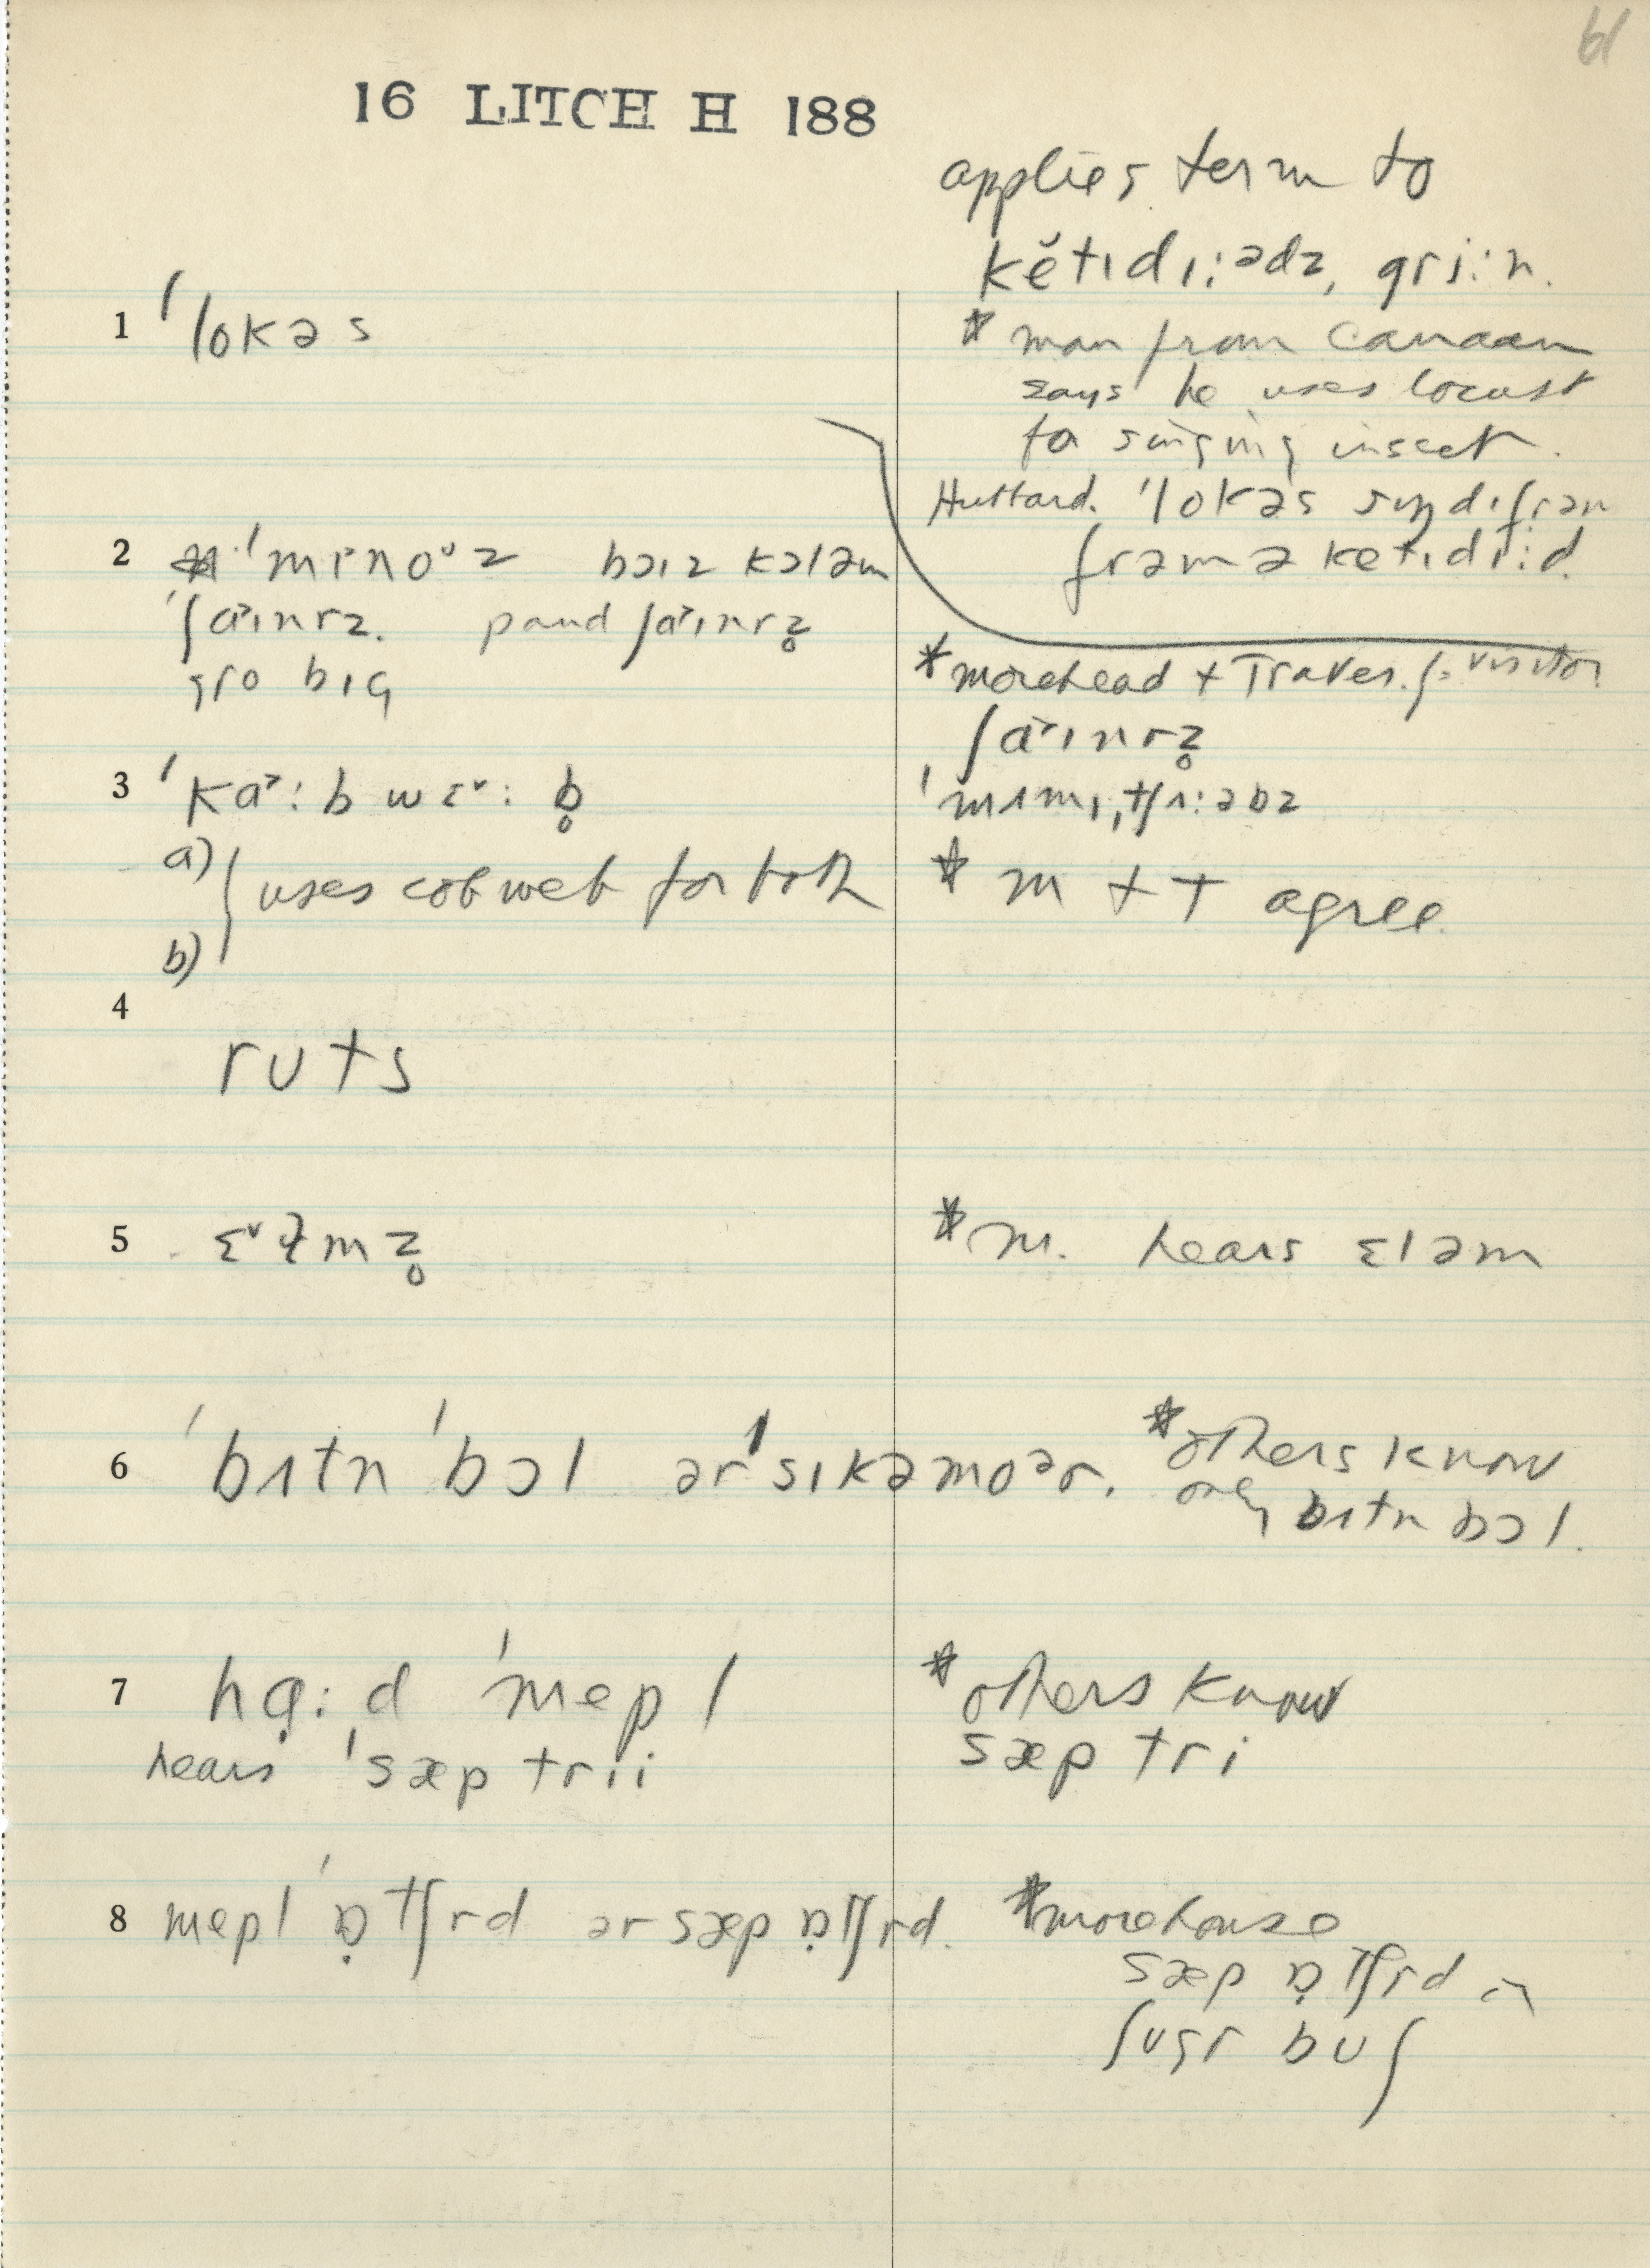 61
16 LITCH H 188
applies term to
kĕtɪdɪːədz, griːn.
1 ˈlokəs
* man from Canaan
says he uses locust
for singing insect.
Hubbard. ˈlokəs
frəm ə ketɪdɪːd.
2 ˈmɪnoᵛz bɔɪz kɔləm
ˈʃaɪnrz. pand ʃaɪnrz̥
gro bɪg
* morehead + Traver. fr visitor
ʃaɪnrz̥
3 ˈkaː b wɛᵛː b̥
a)
uses cobweb for both
b)
* m + T agree.
4
rʊts
5 ɛᵛɫmz̥
* M. hears ɛləm
6 ˈbʌtn ˈbɔl ər ˈsɪkəmoər.
* others know
only bʌtn bɔl.
7 hạːd ˈmepl
hears ˈsæp trii
* others know
sæp tri
8 mepl ˈɒ̣tʃrd ər sæp ɒ̣tʃrd.
* morehouse
sæp ɒ̣tʃrd or
ʃʊgr bʊʃ